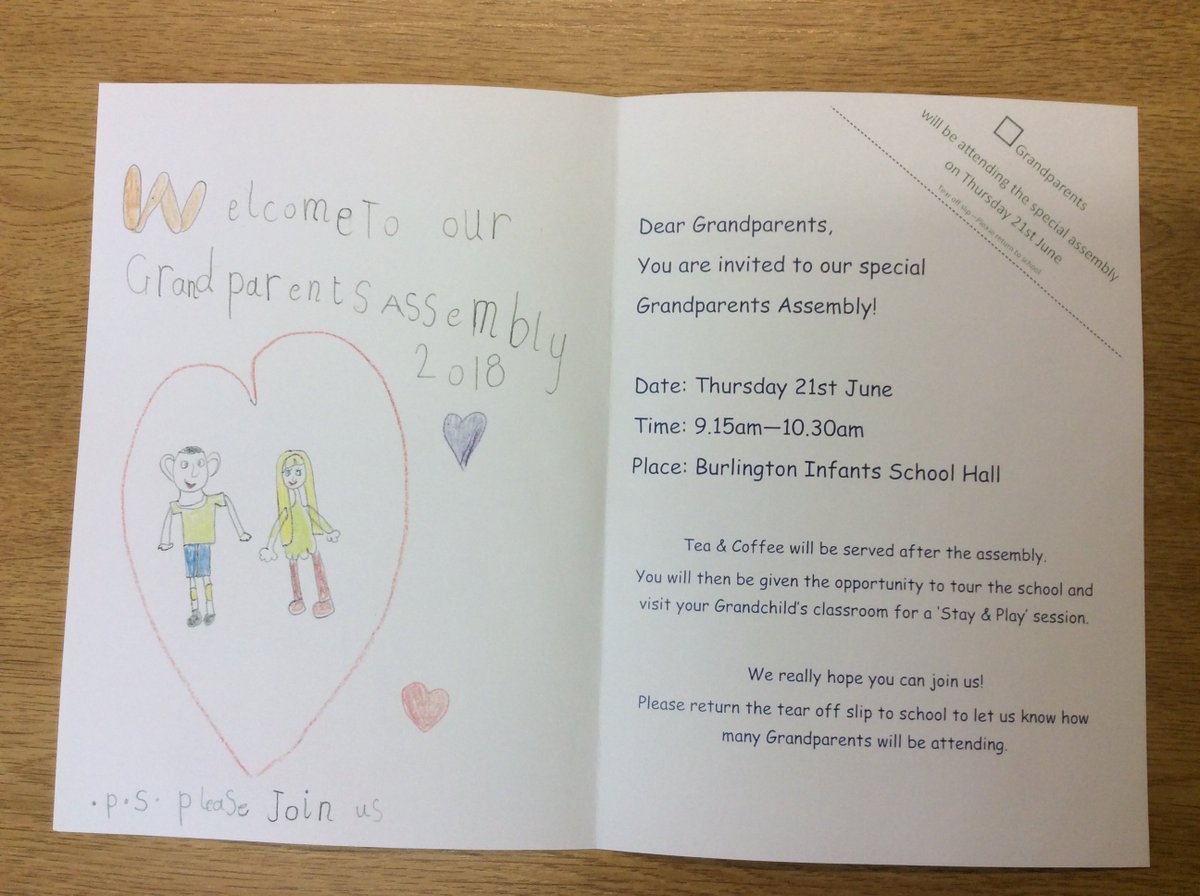 Welcome To our
Grandparents Assembly
2018
.p.s. please Join us
Grandparents
will be attending the special assembly
on Thursday 21st June
Tear off slip—Please return to school
Dear Grandparents,
You are invited to our special
Grandparents Assembly!
Date: Thursday 21st June
Time: 9.15am—10.30am
Place: Burlington Infants School Hall
Tea & Coffee will be served after the assembly.
You will then be given the opportunity to tour the school and
visit your Grandchild's classroom for a 'Stay & Play' session.
We really hope you can join us!
Please return the tear off slip to school to let us know how
many Grandparents will be attending.